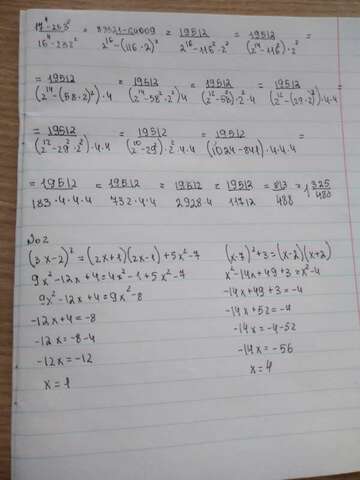 17⁴-253² / 16⁴-232² = 83521-64009 / 2¹⁶-(116·2)² = 19512 / 2¹⁶-116²·2² = 19512 / (2¹⁴-116²)·2² =
= 19512 / (2¹⁴-(58·2)²)·4 = 19512 / (2¹⁴-58²·2²)4 = 19512 / (2¹²-58²)·2²·4 = 19512 / (2¹²-(29·2)²)·4·4 =
= 19512 / (2¹²-29²·2²)·4·4 = 19512 / (2¹⁰-29²)·2²·4·4 = 19512 / (1024-841)·4·4·4 =
= 19512 / 183·4·4·4 = 19512 / 732·4·4 = 19512 / 2928·4 = 19512 / 11712 = 813 / 488 = 1 325/488
№2
(3x-2)²=(2x+1)(2x-1)+5x²-7
9x²-12x+4=4x²-1+5x²-7
9x²-12x+4=9x²-8
-12x+4=-8
-12x=-8-4
-12x=-12
x=1
(x-7)²+3=(x-2)(x+2)
x²-14x+49+3=x²-4
-14x+49+3=-4
-14x+52=-4
-14x=-4-52
-14x=-56
x=4